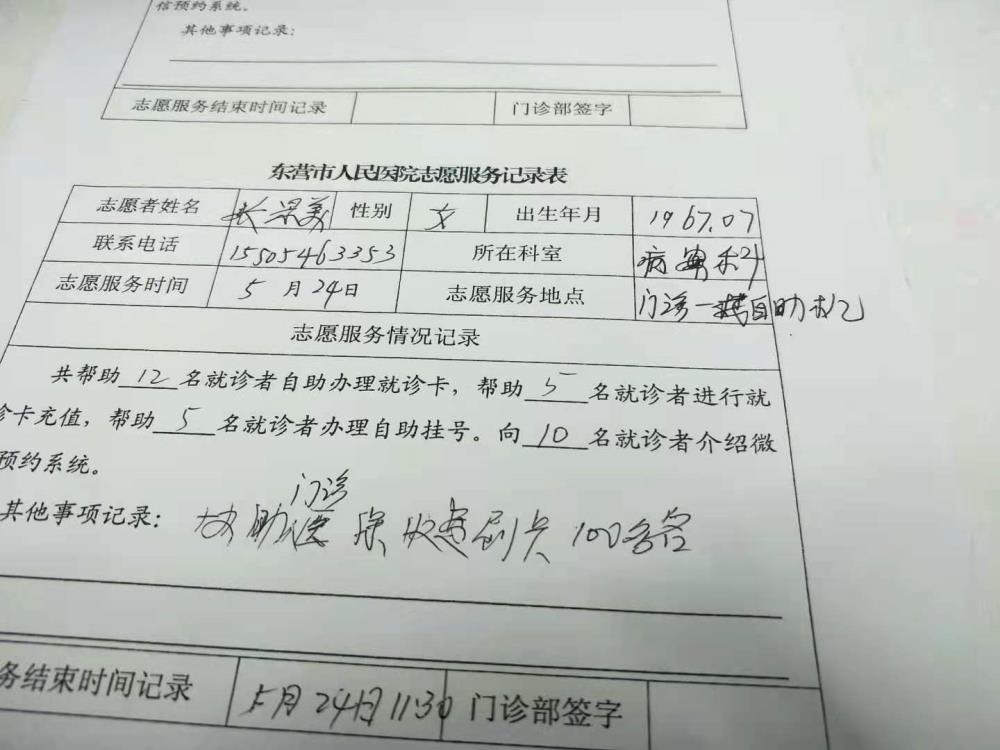 信预约系统。
其他事项记录：
志愿服务结束时间记录 门诊部签字
东营市人民医院志愿服务记录表
志愿者姓名 性别 女 出生年月 1967.07
联系电话 15505463353 所在科室 病案科
志愿服务时间 5月24日 志愿服务地点 门诊一楼自助机
志愿服务情况记录
共帮助12名就诊者自助办理就诊卡，帮助5名就诊者进行就
诊卡充值，帮助5名就诊者办理自助挂号。向10名就诊者介绍微
预约系统。
门诊
其他事项记录： 协助 刷卡100多名
务结束时间记录 5月24日11:30 门诊部签字